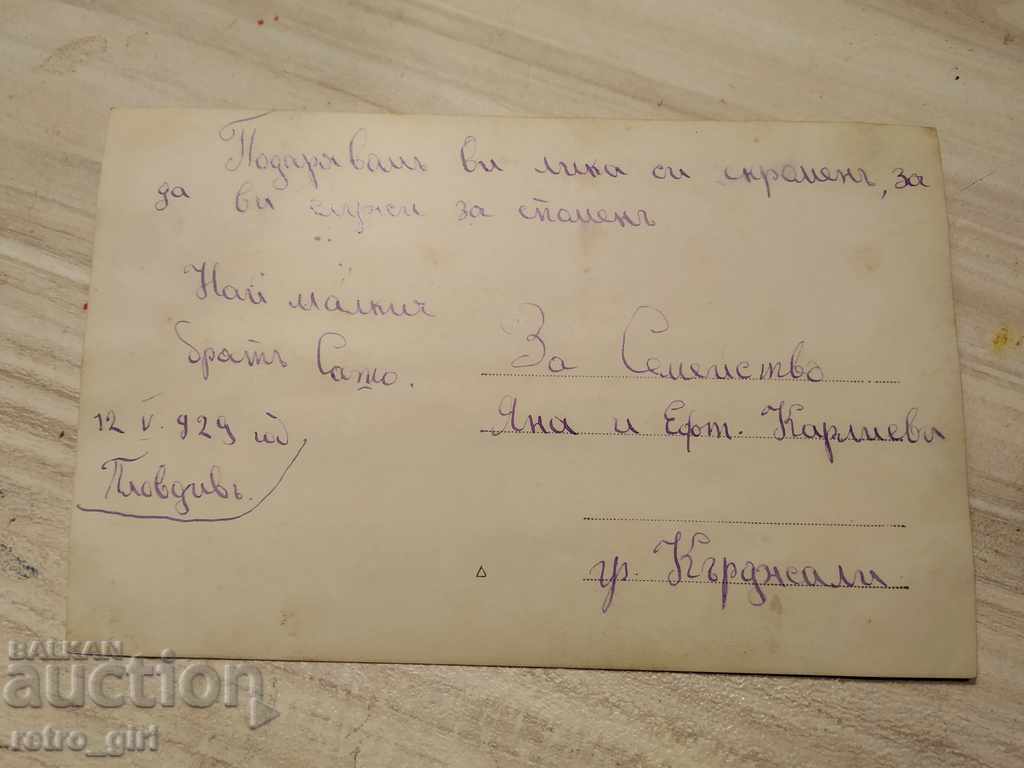 Подарявамъ ви лика си скроменъ, за
да ви служи за споменъ
Най малкич
братъ Сашо.
12 V. 929 год
Пловдивъ.
За Семейство
Яна и Ефт. Карлиеви
гр. Кърджали
BALKAN
auction
retro_girl